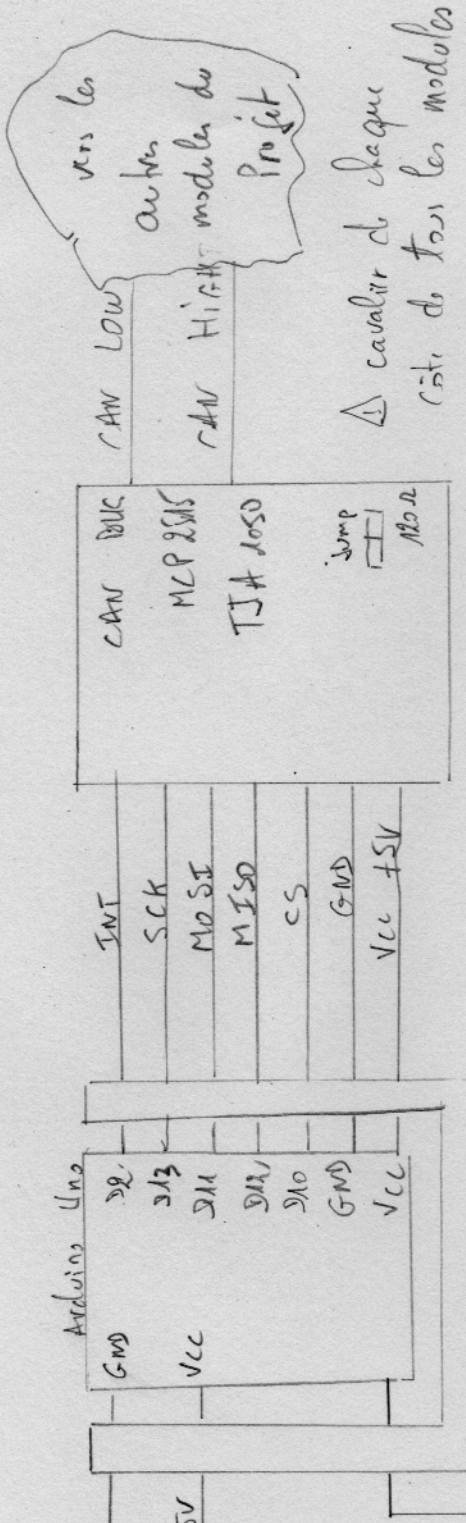 Arduino Uno
GND
VCC
5V
D2
D13
D11
D12
D10
GND
VCC
INT
SCK
MOSI
MISO
CS
GND
VCC +5V
CAN BUS
MCP 2515
TJA 1050
Jump
120Ω
CAN LOW
CAN HIGHT
vers les
autres
modules du
Projet
⚠ cavalier de chaque
côté de tous les modules